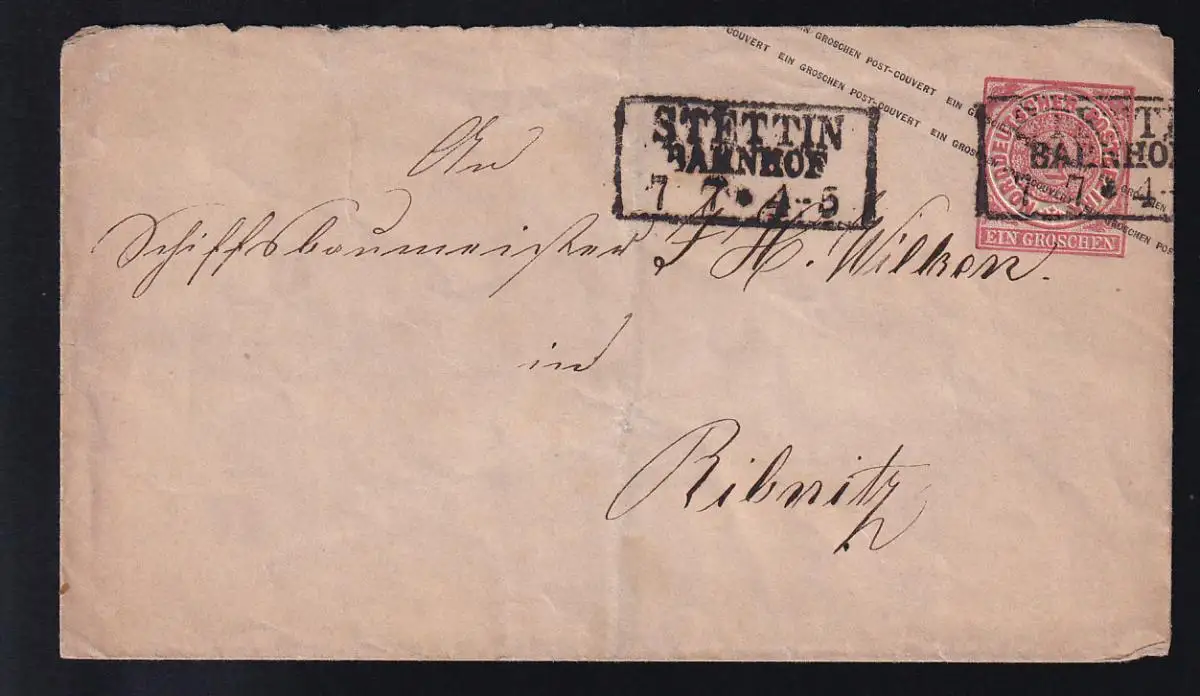 EIN GROSCHEN POST-COUVERT EIN
COUVERT EIN GROSCHEN POST-COUVERT EIN GROSCHEN
STETTIN
BAHNHOF
7 7 * 4-5
NORDDEUTSCHER POSTBEZIRK
1
EIN GROSCHEN
BAHNHO
7 * 4-
An
Schiffsbaumeister F H. Wilken.
in
Ribnitz